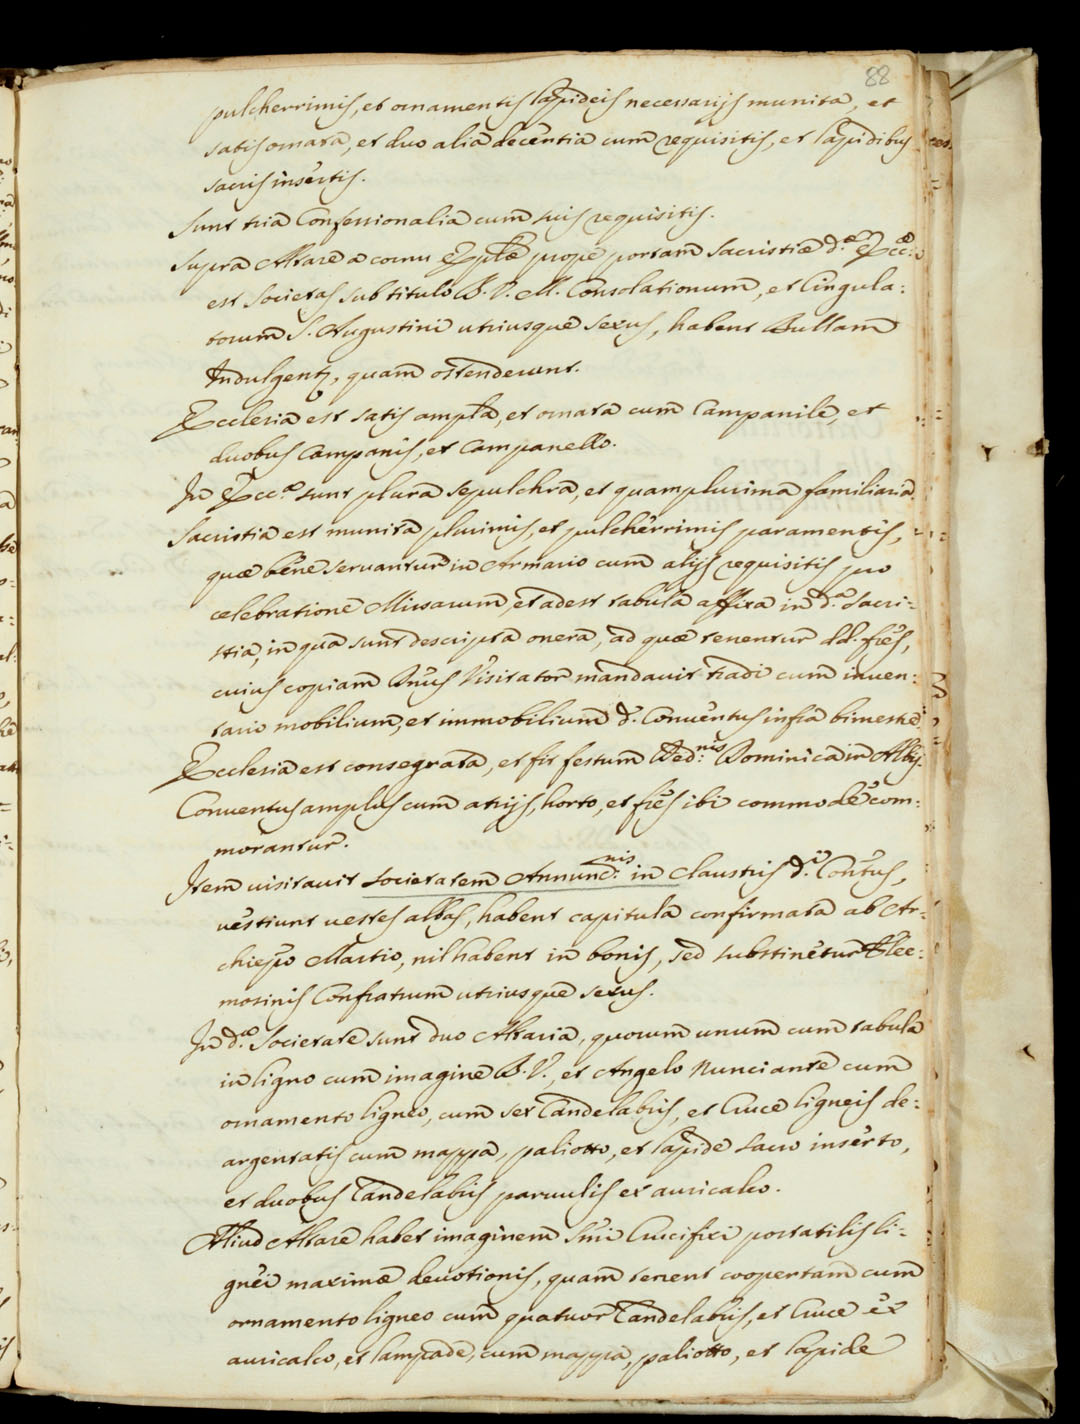 88
pulcherrimis, et ornamentis lapideis necessarijs munita, et
satis ornata, et duo alia decentia cum requisitis, et lapidibus
sacris insertis.
Sunt tria Confessionalia cum suis requisitis.
Supra Altare a cornu Eplæ prope portam Sacristiæ d.æ Eccæ
est Societas sub titulo B. V. M. Consolationum, et Cingula:
torum S. Augustini utriusque sexus, habent Bullam
Indulgent., quam ostenderunt.
Ecclesia est satis ampla, et ornata cum Campanile, et
duobus Campanis, et Campanello.
In Ecc.a sunt plura sepulchra, et quamplurima familiaria.
Sacristia est munita plurimis, et pulcherrimis paramentis,
quæ bene servantur in Armario cum alijs requisitis pro
celebratione Missarum, et adest tabula affixa in d.a Sacri:
stia, in qua sunt descripta onera, ad quæ tenentur dd. fres,
cuius copiam Dnus Visitator mandavit tradi cum inven:
tario mobilium, et immobilium d. Conventus infra bimestre
Ecclesia est consegrata, et fit festum Ded:nis Dominica in Albis.
Conventus amplus cum atrijs, horto, et fres ibi commode com:
morantur.
Item visitavit societatem Annunc:nis in Claustris d.i Contus,
vestiunt vestes albas, habent capitula confirmata ab Ar:
chiepo Martio, nil habent in bonis, sed substinetur Elee:
mosinis Confratrum utriusque sexus.
In d.a Societate sunt duo Altaria, quorum unum cum tabula
in ligno cum imagine B. V., et Angelo Nunciante cum
ornamento ligneo, cum sex Candelabris, et Cruce ligneis de:
argentatis cum mappa, paliotto, et lapide sacro inserto,
et duobus Candelabris parvulis ex auricalco.
Aliud Altare habet imaginem Smi Crucifixi portatilis li:
gnei maximæ devotionis, quam tenent coopertam cum
ornamento ligneo cum quatuor Candelabris, et Cruce ex
auricalco, et lampade, cum mappa, paliotto, et lapide